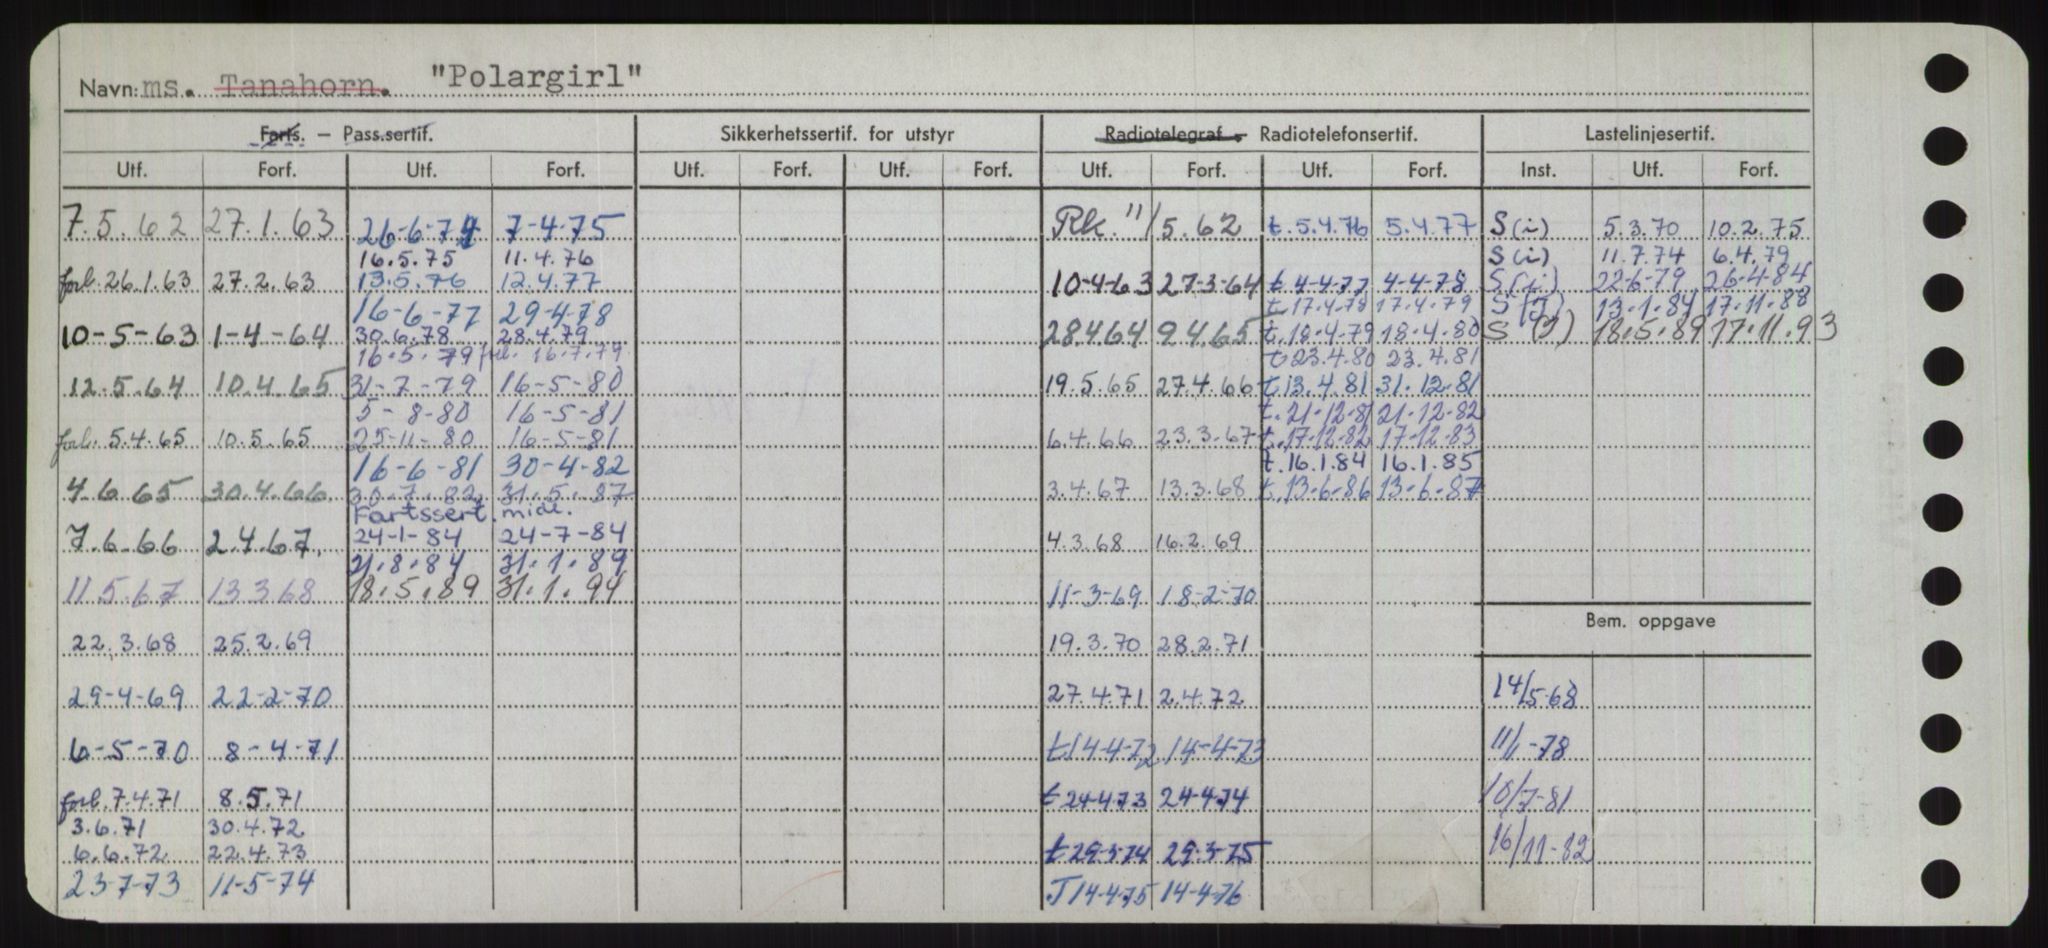 Navn: ms. Tanahorn. "Polargirl"
Farts. – Pass.sertif. Sikkerhetssertif. for utstyr Radiotelegraf – Radiotelefonsertif. Lastelinjesertif.
Utf. Forf. Utf. Forf. Utf. Forf. Utf. Forf. Utf. Forf. Utf. Forf. Inst. Utf. Forf.
7.5.62 27.1.63 26-6-74 7-4-75 Rk. 11/5.62 t. 5.4.76 5.4.77 S(i) 5.3.70 10.2.75
16.5.75 11.4.76 S(i) 11.7.74 6.4.79
forl. 26.1.63 27.2.63 13.5.76 12.4.77 10-4-63 27-3-64 t 4-4-77 4-4-78 S(i) 22-6-79 26-4-84
16-6-77 29-4-78 t.17.4.78 17.4.79 S(J) 13.1.84 17.11.88
10-5-63 1-4-64 30.6.78 28.4.79 28.4.64 9.4.65 t.18.4.79 18.4.80 S (J) 18.5.89 17.11.93
16.5.79 forl. 16.7.79 t 23.4.80 23.4.81
12.5.64 10.4.65 31-7-79 16-5-80 19.5.65 27.4.66 t.13.4.81 31.12.81
5-8-80 16-5-81 t.21.12.81 21.12.82
forl. 5.4.65 10.5.65 25-11-80 16-5-81 6.4.66 23.3.67 t.17.12.82 17.12.83
16-6-81 30-4-82 t.16.1.84 16.1.85
4.6.65 30.4.66 30.7.82 31.5.87 3.4.67 13.3.68 t.13.6.86 13.6.87
Fartssert. midl.
7.6.66 2.4.67. 24-1-84 24-7-84 4.3.68 16.2.69
21.8.84 31.1.89
11.5.67 13.3.68 18.5.89 31.1.94 11-3-69 18-2-70
Bem. oppgave
22.3.68 25.2.69 19.3.70 28.2.71
29-4-69 22-2-70 27.4.71 2.4.72 14/5-68
6-5-70 8-4-71 t14-4-72 14-4-73 11/1-78
forl. 7.4.71 8.5.71 t 24-4-73 24-4-74 10/7-81
3.6.71 30.4.72
6.6.72 22.4.73 t 29-3-74 29-3-75 16/11-82
23-7-73 11-5-74 J 14-4-75 14-4-76